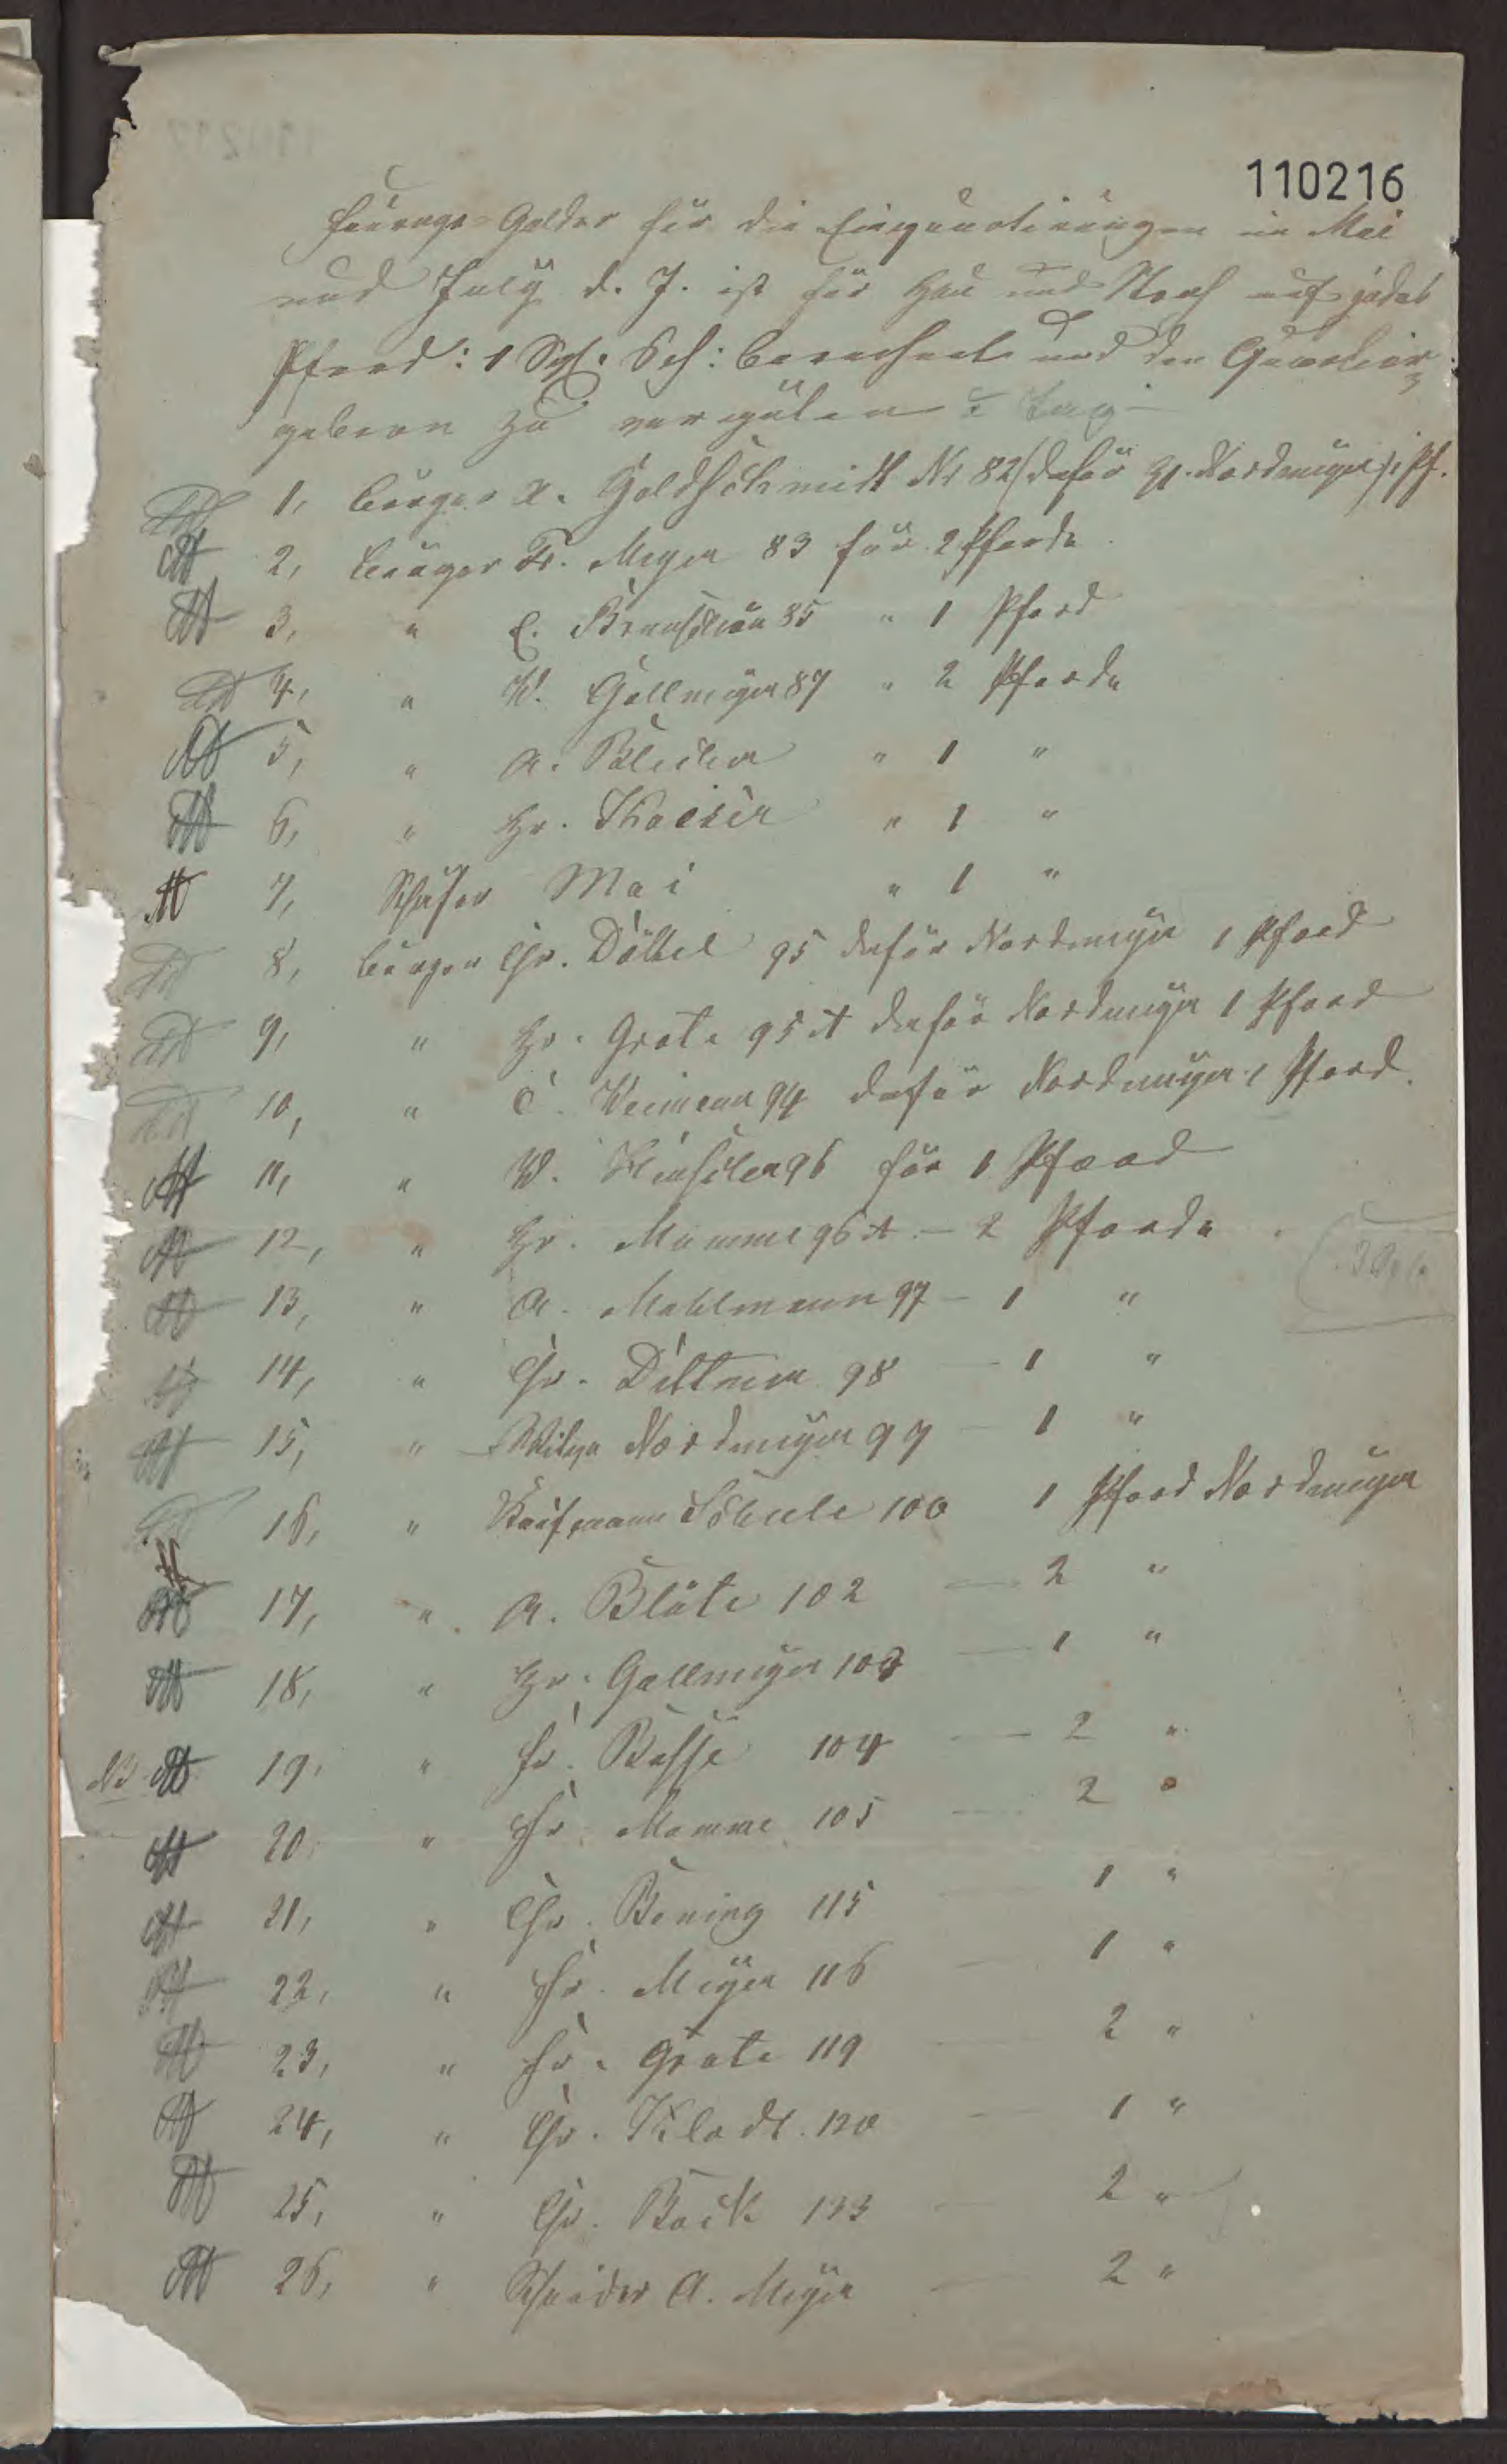 110216
Fourage-Gelder für die Einquartirungen in Mai
und July d. J. ist für Heu und Stroh auf jedes
Pferd: 1 berechnet und den Quartier-
gebern zu vergüten Tag
1, Bürger A. Goldschmidt Nr 82 (dafür H. Nordmeyer) 1 Pf.
2, Bürger Fr. Meyer 83 für 2 Pferde
3, " C. 85 " 1 Pferd
4, " W. Gellmeyer 87 " 2 Pferde
5, " A. " 1 "
6, " Hr. Kaeser " 1 "
7, Schäfer Mai " 1 "
8, Bürger Chr. Döttel 95 dafür Nordmeyer 1 Pferd
9, " Hr. Grote 95 A dafür Nordmeyer 1 Pferd
10, " C. Weimann 94 dafür Nordmeyer 1 Pferd.
11, " W. 96 für 1 Pferd
12, " Hr. Mumme 96 A – 2 Pferde
13, " A. Mahlmann 97 – 1 "
14, " Chr. Dittmer 98 – 1 "
15, " Witwe Nordmeyer 99 – 1 "
16, " Kaufmann Schule 100 1 Pferd Nordmeyer
17, " A. Blöte 102 – 2 "
18, " Hr. Gellmeyer 103 – 1 "
NB 19, " Fr. Busse 104 – 2 "
20, " Fr. Mumme 105 – 2 "
21, " Chr. Bening 115 – 1 "
22, " Fr. Meyer 116 – 1 "
23, " Fr. Grote 119 – 2 "
24, " Chr. Kladt. 120 – 1 "
25, " Chr. Bock 133 – 2 "
26, " Schneider A. Meyer – 2 "